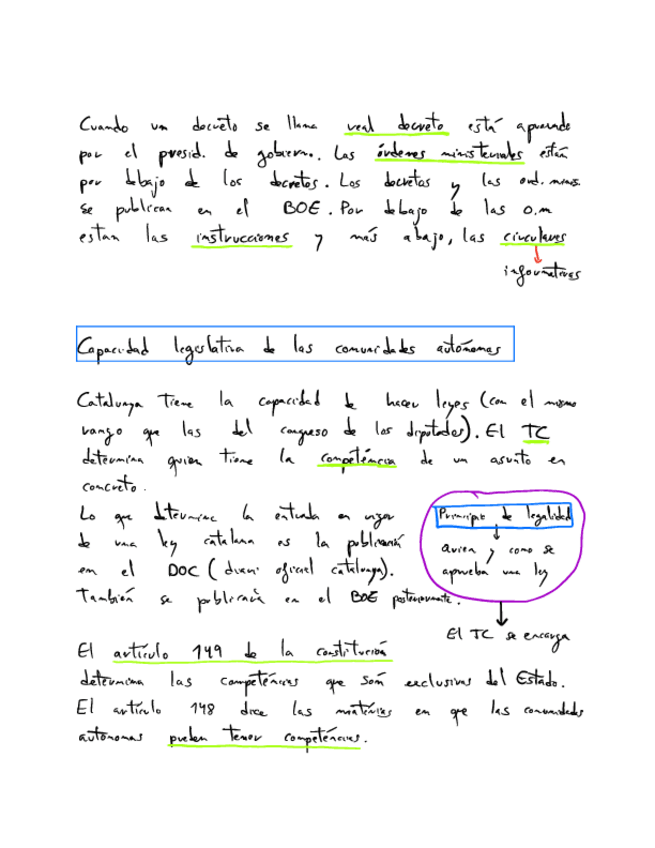 Cuando un decreto se llama real decreto está aprovado
por el presid. de gobierno. Las órdenes ministeriales están
por debajo de los decretos. Los decretos y las ord. minis.
se publican en el BOE. Por debajo de las o.m
estan las instrucciones y más abajo, las circulares
informativas
Capacidad legislativa de las comunidades autónomas
Catalunya tiene la capacidad de hacer leyes (con el mismo
rango que las del congreso de los diputados). El TC
determina quien tiene la competéncia de un asunto en
concreto.
Lo que determina la entrada en vigor
de una ley catalana es la publicación
en el DOC (diari oficial catalunya).
También se publicarà en el BOE posteriormente.
Principio de legalidad
quien y como se
aprueba una ley
El TC se encarga
El artículo 149 de la constitución
determina las competéncias que són exclusivas del Estado.
El artículo 148 dice las matérias en que las comunidades
autónomas pueden tener competéncias.